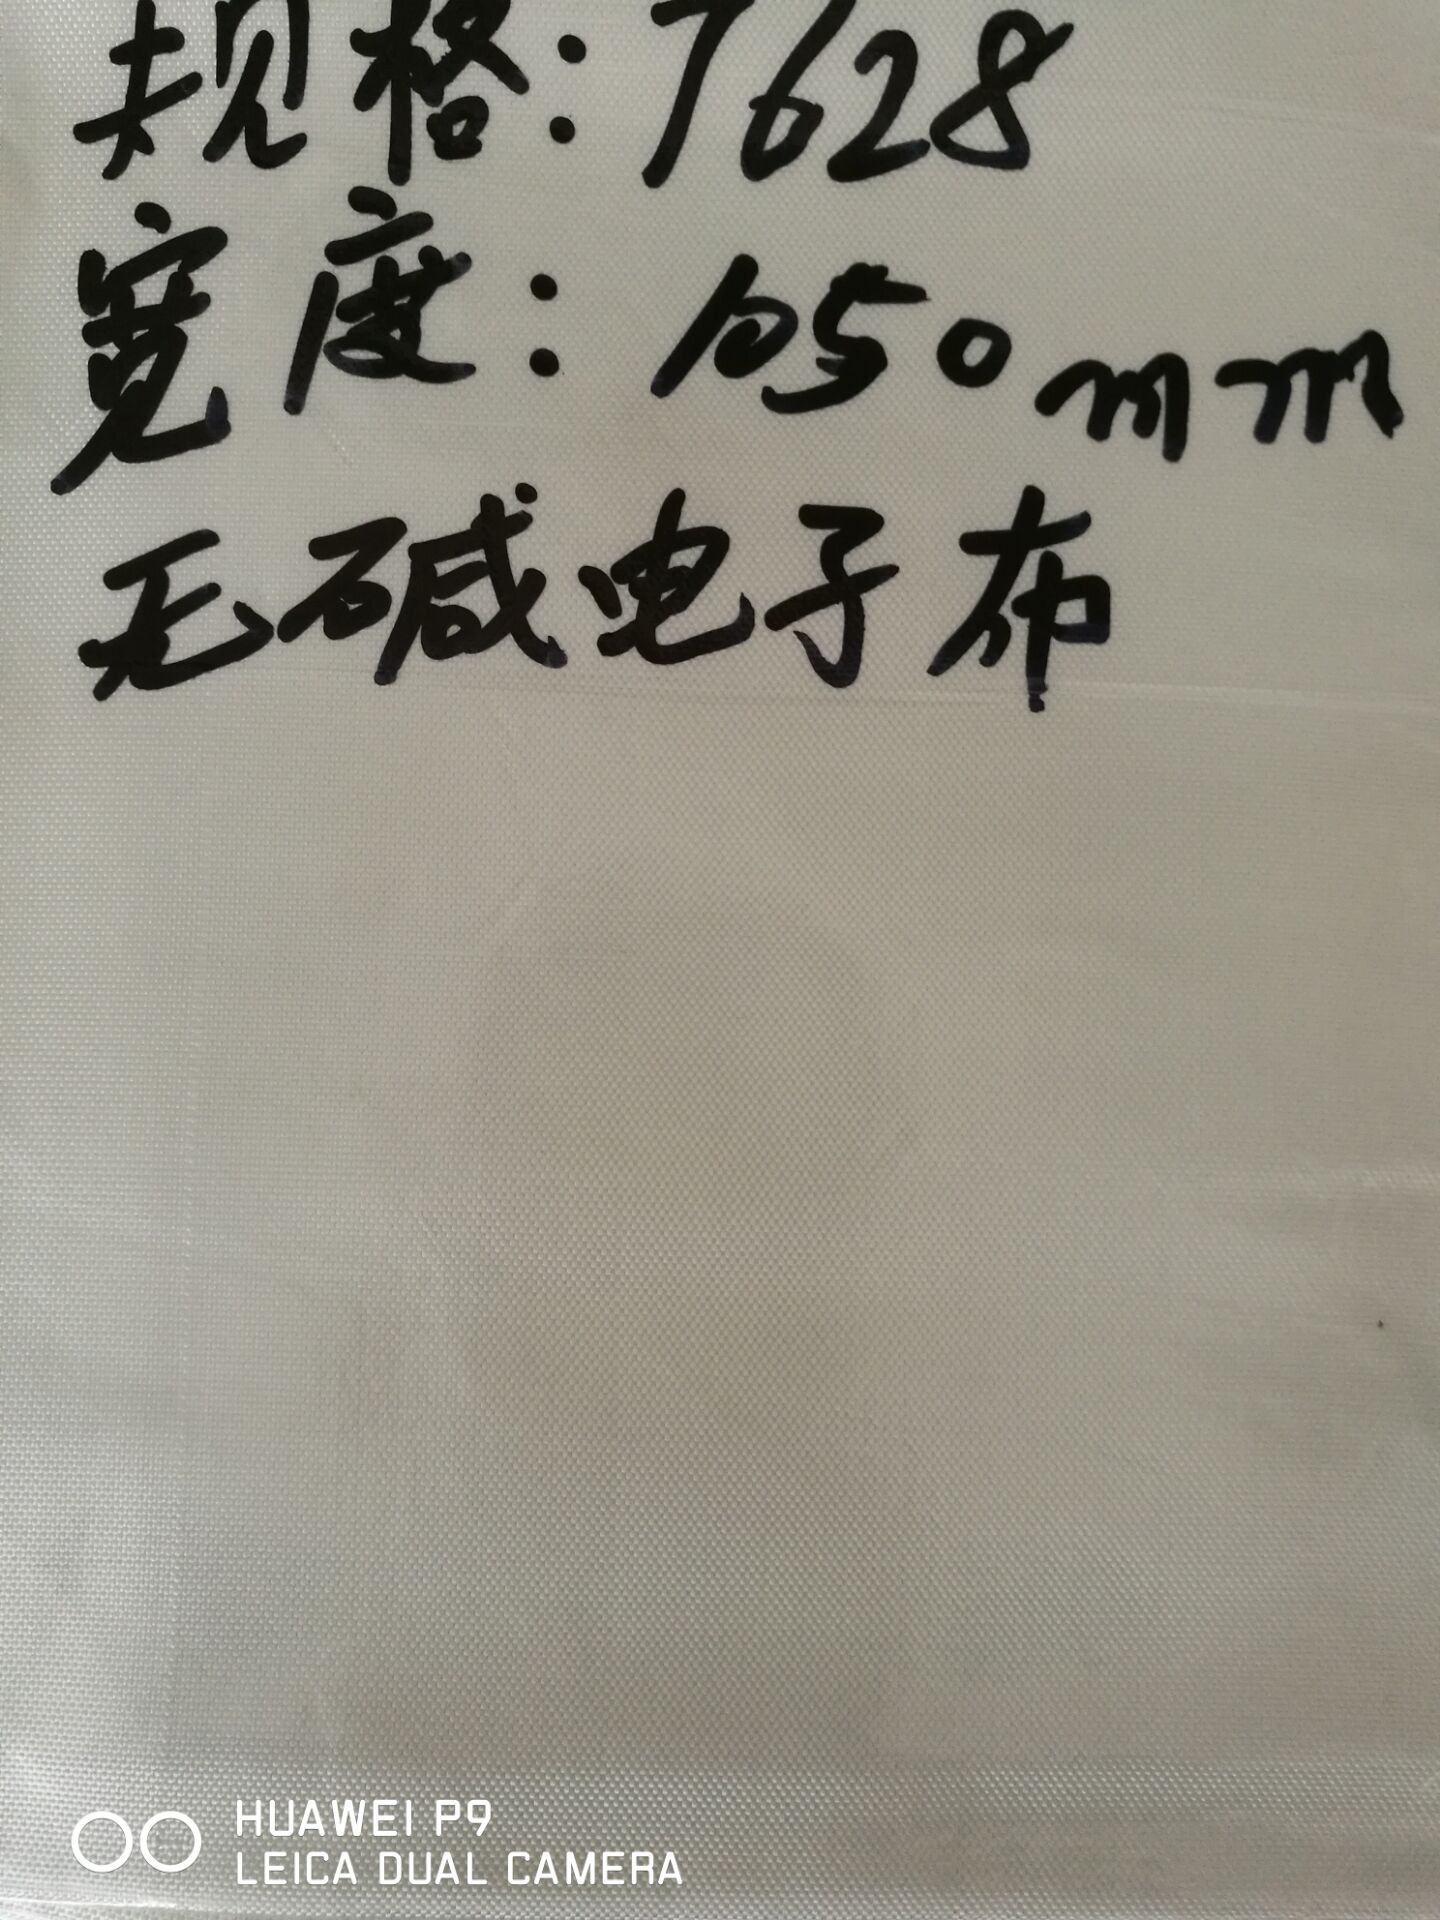 规格:7628
宽度:1050mm
无碱电子布
HUAWEI P9
LEICA DUAL CAMERA